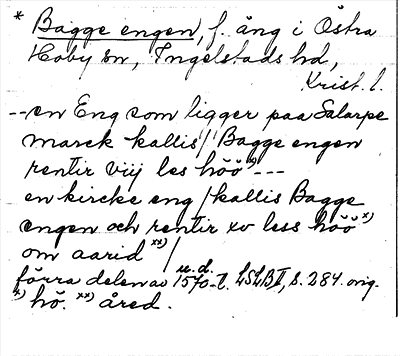 * Bagge engen, f. äng i Östra
Hoby sn, Ingelstads hd,
Krist. l.
--en Eng som ligger paa Salarpe
marck kallis / Bagge engen
rentir viij les höö ---
en kircke eng / kallis Bagge
engen och rentir xv less höö x)
om aarid xx) /
förra delen av 1570-t. LSLB II, s. 284. orig.
u. d.
x) hö. xx) åred.